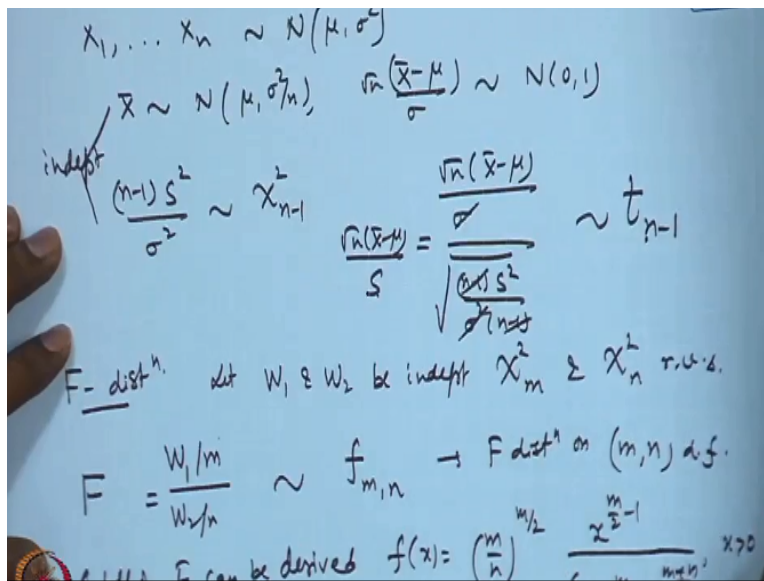 X₁, ... Xₙ ~ N(μ, σ²)
X̄ ~ N(μ, σ²/n), √n(X̄-μ)/σ ~ N(0,1)
indept
(n-1)S²/σ² ~ χ²ₙ₋₁
√n(X̄-μ)/S = (√n(X̄-μ)/σ) / √((n-1)S²/σ²(n-1)) ~ tₙ₋₁
F-distⁿ. Let W₁ & W₂ be indept χ²ₘ & χ²ₙ r.v.s.
F = (W₁/m)/(W₂/n) ~ fₘ,ₙ → F distⁿ on (m,n) d.f.
F can be derived f(x) = (m/n)^(m/2) x^(m/2-1) x>0